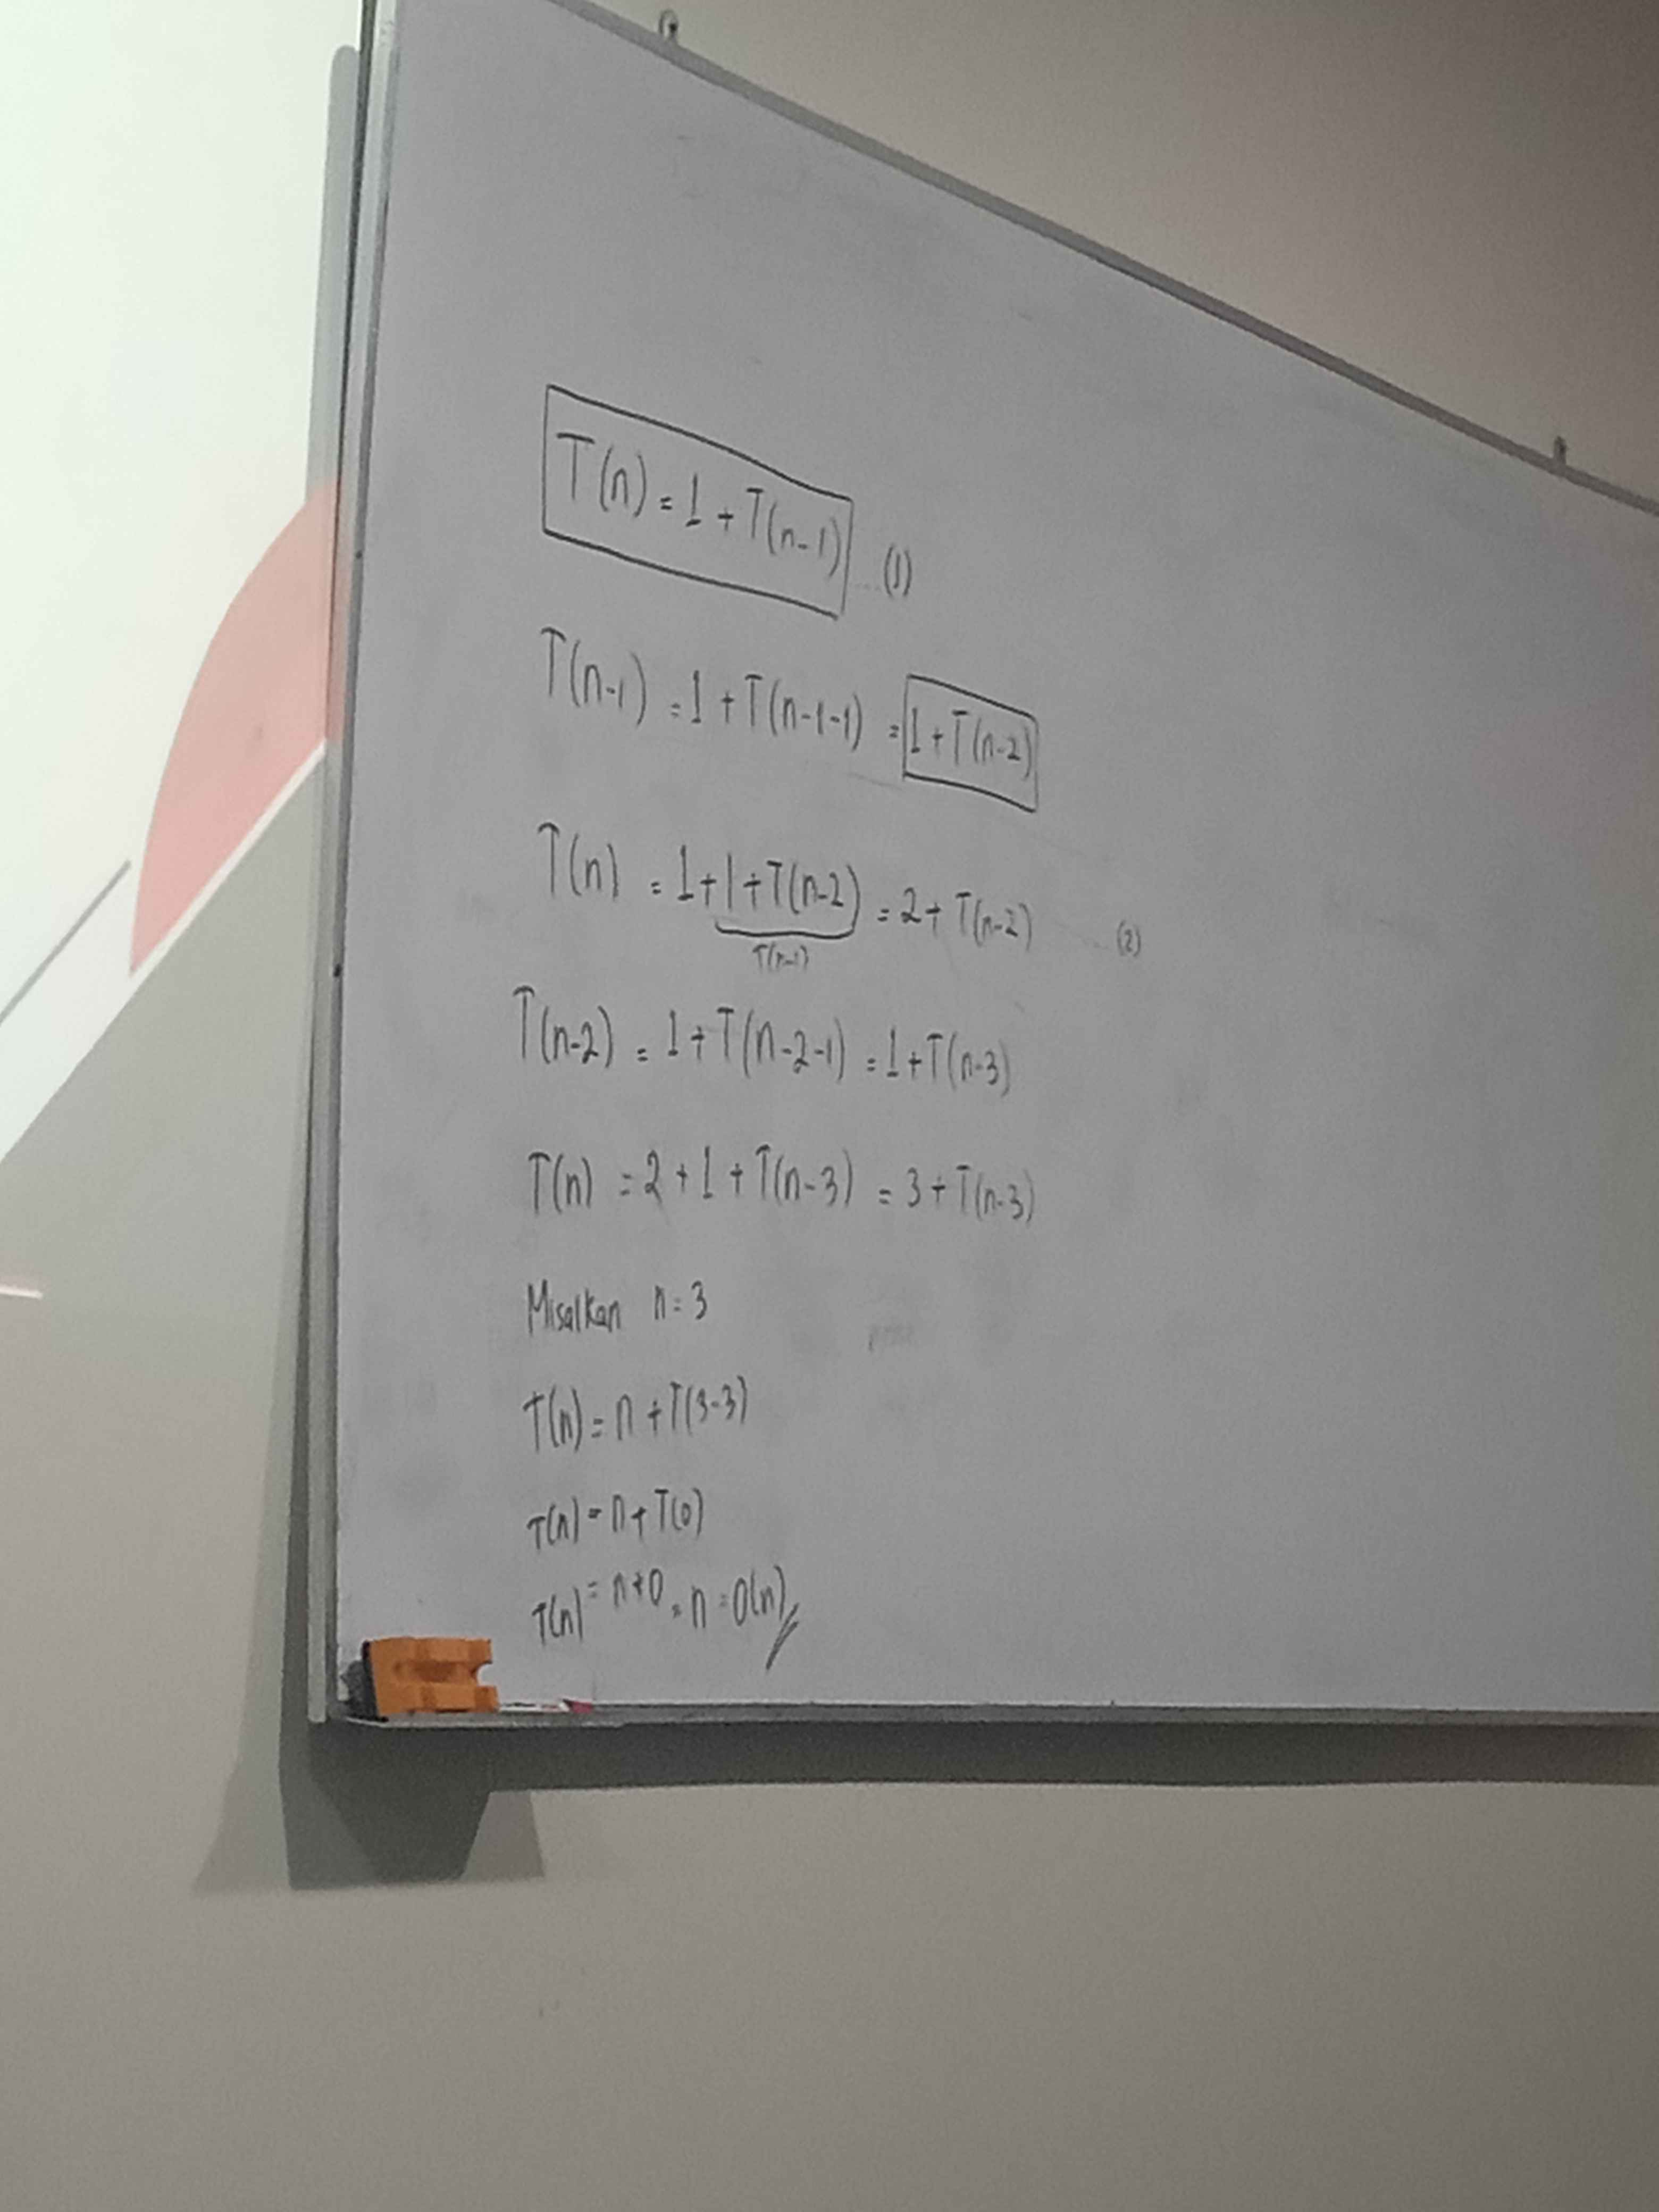 T(n) = 1 + T(n-1) .... (1)
T(n-1) = 1 + T(n-1-1) = 1 + T(n-2)
T(n) = 1 + 1 + T(n-2) = 2 + T(n-2) .... (2)
T(n-1)
T(n-2) = 1 + T(n-2-1) = 1 + T(n-3)
T(n) = 2 + 1 + T(n-3) = 3 + T(n-3)
Misalkan n = 3
T(n) = n + T(3-3)
T(n) = n + T(0)
T(n) = n + 0 = n = O(n)